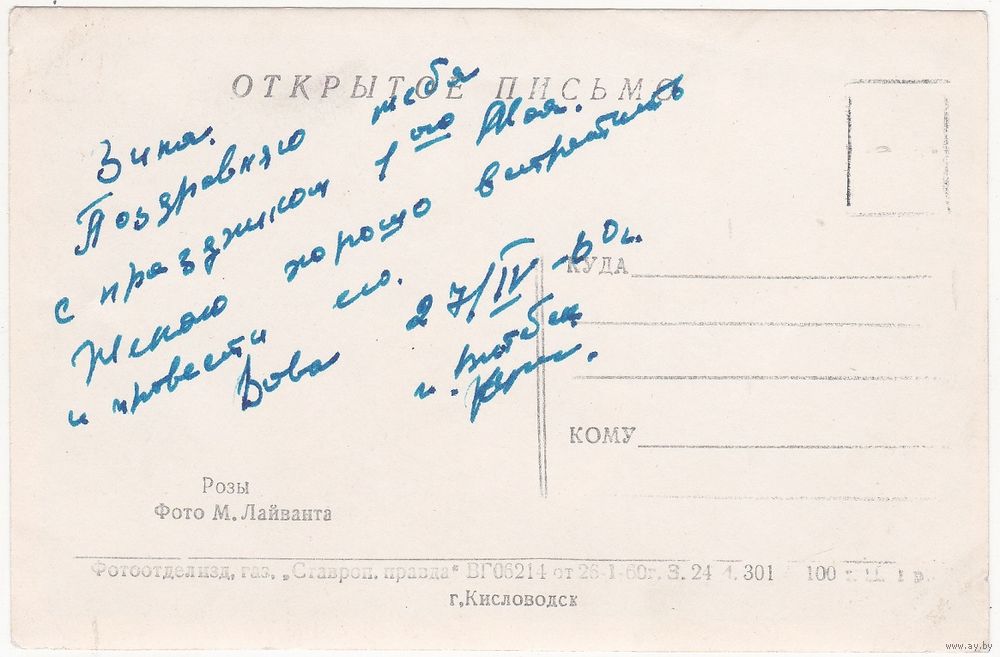 ОТКРЫТОЕ ПИСЬМО
Зина.
Поздравляю тебя
с праздником 1ого Мая.
Желаю хорошо встретить
и провести его.
Вова
27/IV-60г.
г. Витебск
КУДА
КОМУ
Розы
Фото М. Лайванта
Фотоотделизд. газ. „Ставроп. правда“ ВГ06214 от 26-1-60г. З. 24 301 100
г. Кисловодск
www.ay.by